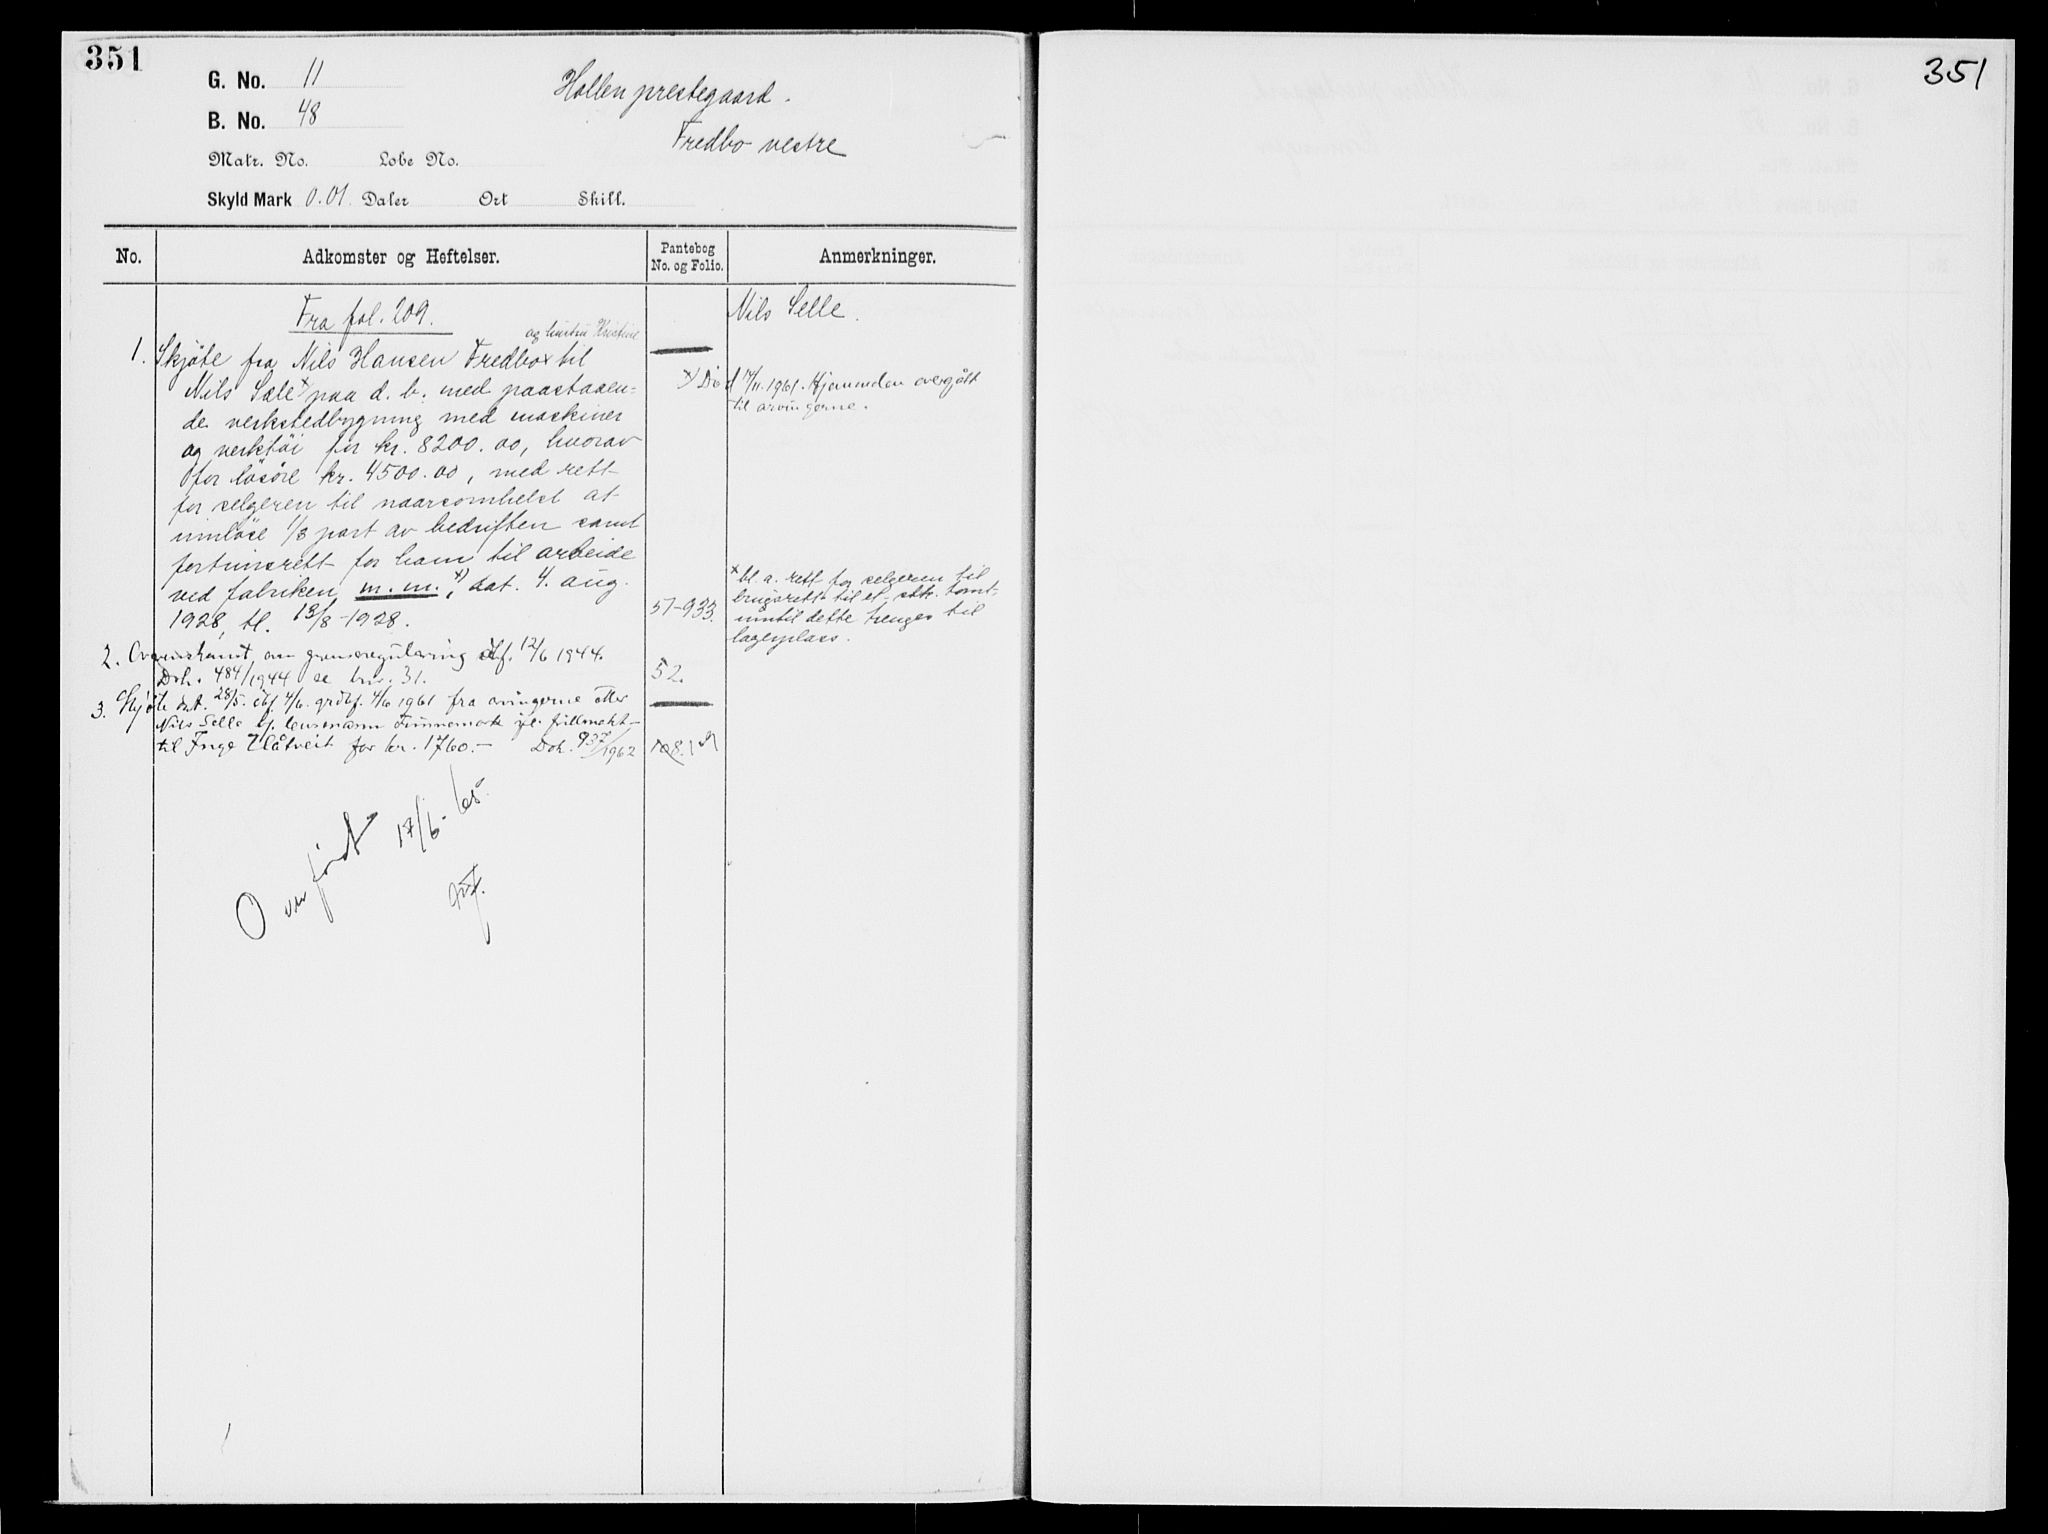 351
G. No. 11
Hollen prestegaard.
B. No. 48
Fredbo vestre
Matr. No. Løbe No.
Skyld Mark 0.01 Daler Ort Skill.
No.
Adkomster og Heftelser.
Pantebog
No. og Folio.
Anmerkninger.
Fra fol. 209.
Nils Selle.
og hustru Kristine
1. Skjøte fra Nils Hansen Fredbo x til
Nils Sæle x) paa d. b. med paastaaen-
de verkstedbygning med maskiner
og verktøi for kr. 8200.00, hvorav
for løsøre kr. 4500.00, med rett
for selgeren til naarsomhelst at
innløse 1/3 part av bedriften samt
fortrinsrett for ham til arbeide
ved fabriken m.m. x), dat. 4. aug.
1928, tl. 13/8-1928.
51-933.
x) Død 14/11.1961. Hjemmelen overgått
til arvingerne.
x bl. a. rett for selgeren til
bruksrett til et stk. tomt,
inntil dette trenges til
lagerplass.
2. Overenskomst om grenseregulering dbf. 12/6 1944.
Dok. 484/1944 se bnr. 31.
52.
3. Skjøte dat. 28/5. dbf. 4/6. grdbf. 4/6 1961 fra arvingerne etter
Nils Selle v. lensmann Finnemark ifl. fullmakt
til Inge Flåtveit for kr. 1760.- Dok. 937/1962
Overført 17/6-65.
351